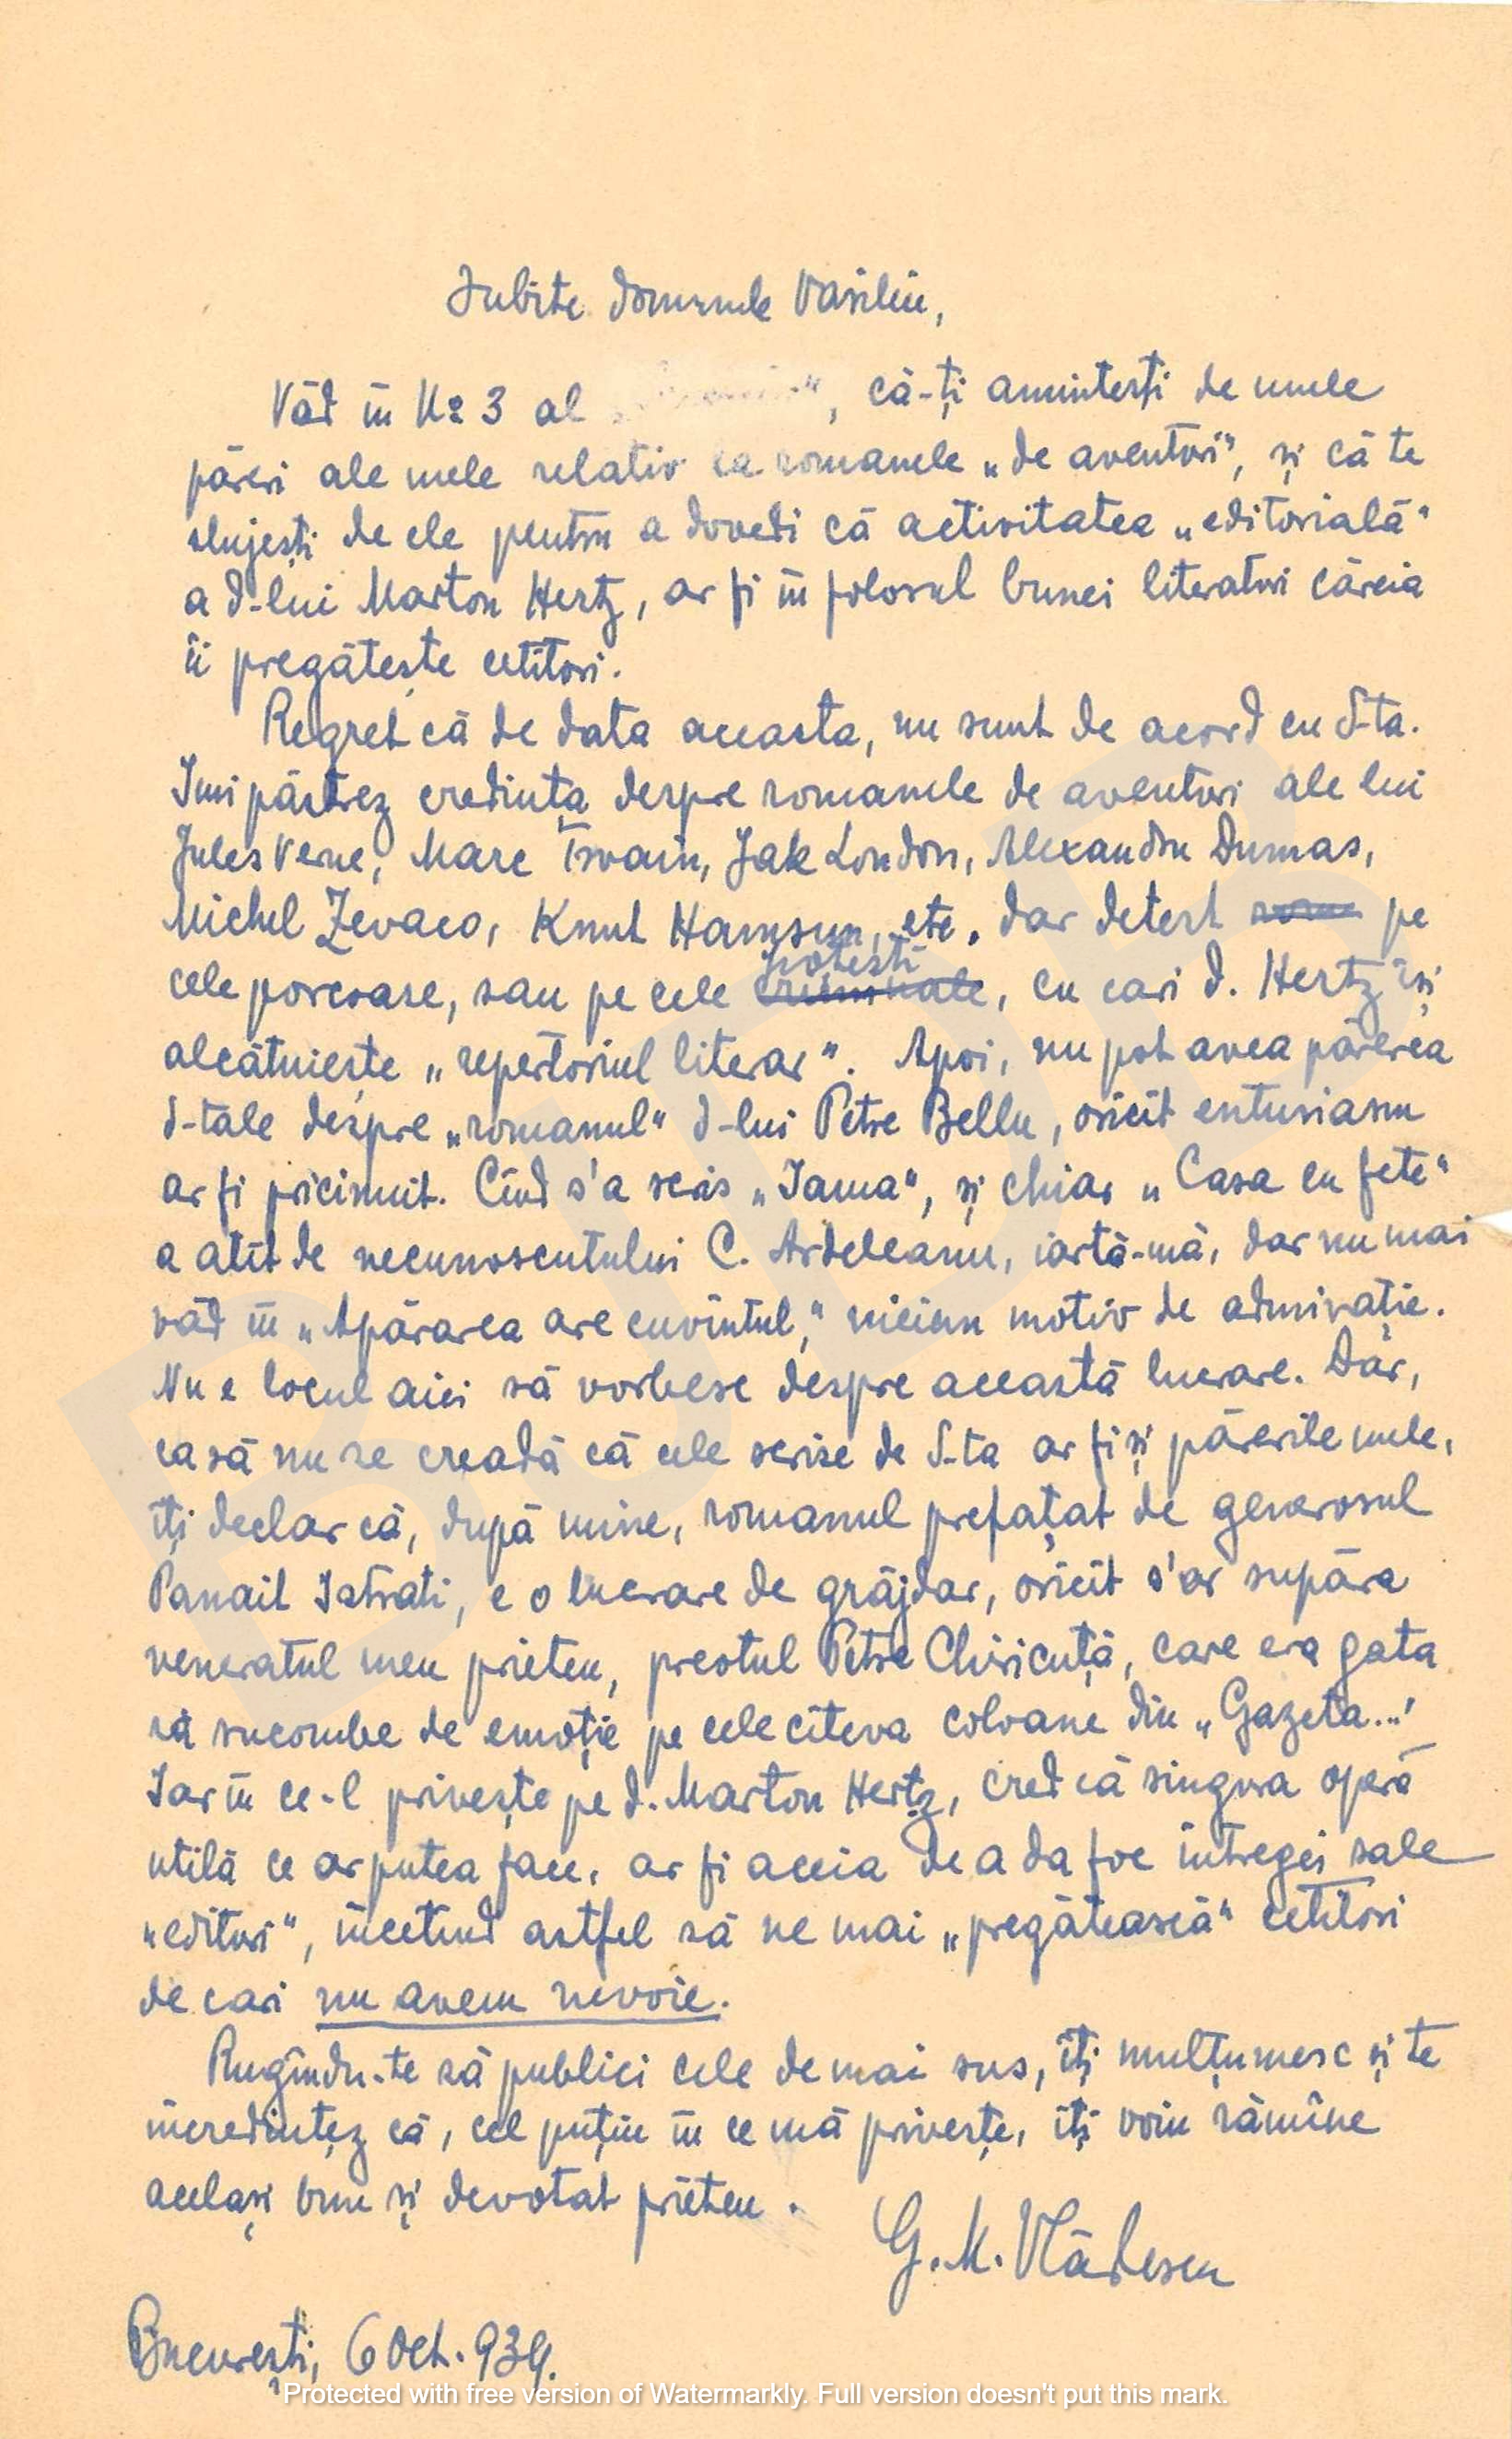 Iubite domnule Vasiliu,
Văd în No 3 al , că-ți amintești de unele
păreri ale mele relativ la romanele „de aventuri", și că te
slujești de ele pentru a dovedi că activitatea „editorială"
a d-lui Marton Hertz, ar fi în folosul bunei literaturi căreia
îi pregătește cetitori.
Regret că de data aceasta, nu sunt de acord cu d-ta.
Imi păstrez credința despre romanele de aventuri ale lui
Jules Verne, Marc Twain, Jak London, Alexandru Dumas,
Michel Zevaco, Knut Hamsun, etc. dar detest pe
cele porcoase, sau pe cele criminale, cu cari d. Hertz își
alcătuiește „repertoriul literar". Apoi, nu pot avea părerea
d-tale despre „romanul" d-lui Petre Bellu, oricît entusiasm
ar fi pricinuit. Cînd s'a scris „Iama", și chiar „Casa cu fete"
a atît de necunoscutului C. Ardeleanu, iartă-mă, dar nu mai
văd în „Apărarea are cuvîntul," niciun motiv de admirație.
Nu e locul aici să vorbesc despre această lucrare. Dar,
ca să nu se creadă că cele scrise de d-ta ar fi și părerile mele,
îți declar că, după mine, romanul prefațat de generosul
Panait Istrati, e o lucrare de grăjdar, oricît s'ar supăra
veneratul meu prieten, preotul Petre Chiricuță, care era gata
să sucombe de emoție pe cele cîteva coloane din „Gazeta..."
Iar în ce-l privește pe d. Marton Hertz, cred că singura operă
utilă ce ar putea face, ar fi aceia de a da foc întregei sale
„edituri", încetind astfel să ne mai „pregătească" cetitori
de cari nu avem nevoie.
Rugîndu-te să publici cele de mai sus, îți mulțumesc și te
incredințez că, cel puțin în ce mă privește, îți voiu rămîne
același bun și devotat prieten.
G. M. Vlădescu
București, 6 Oct. 939.
Protected with free version of Watermarkly. Full version doesn't put this mark.